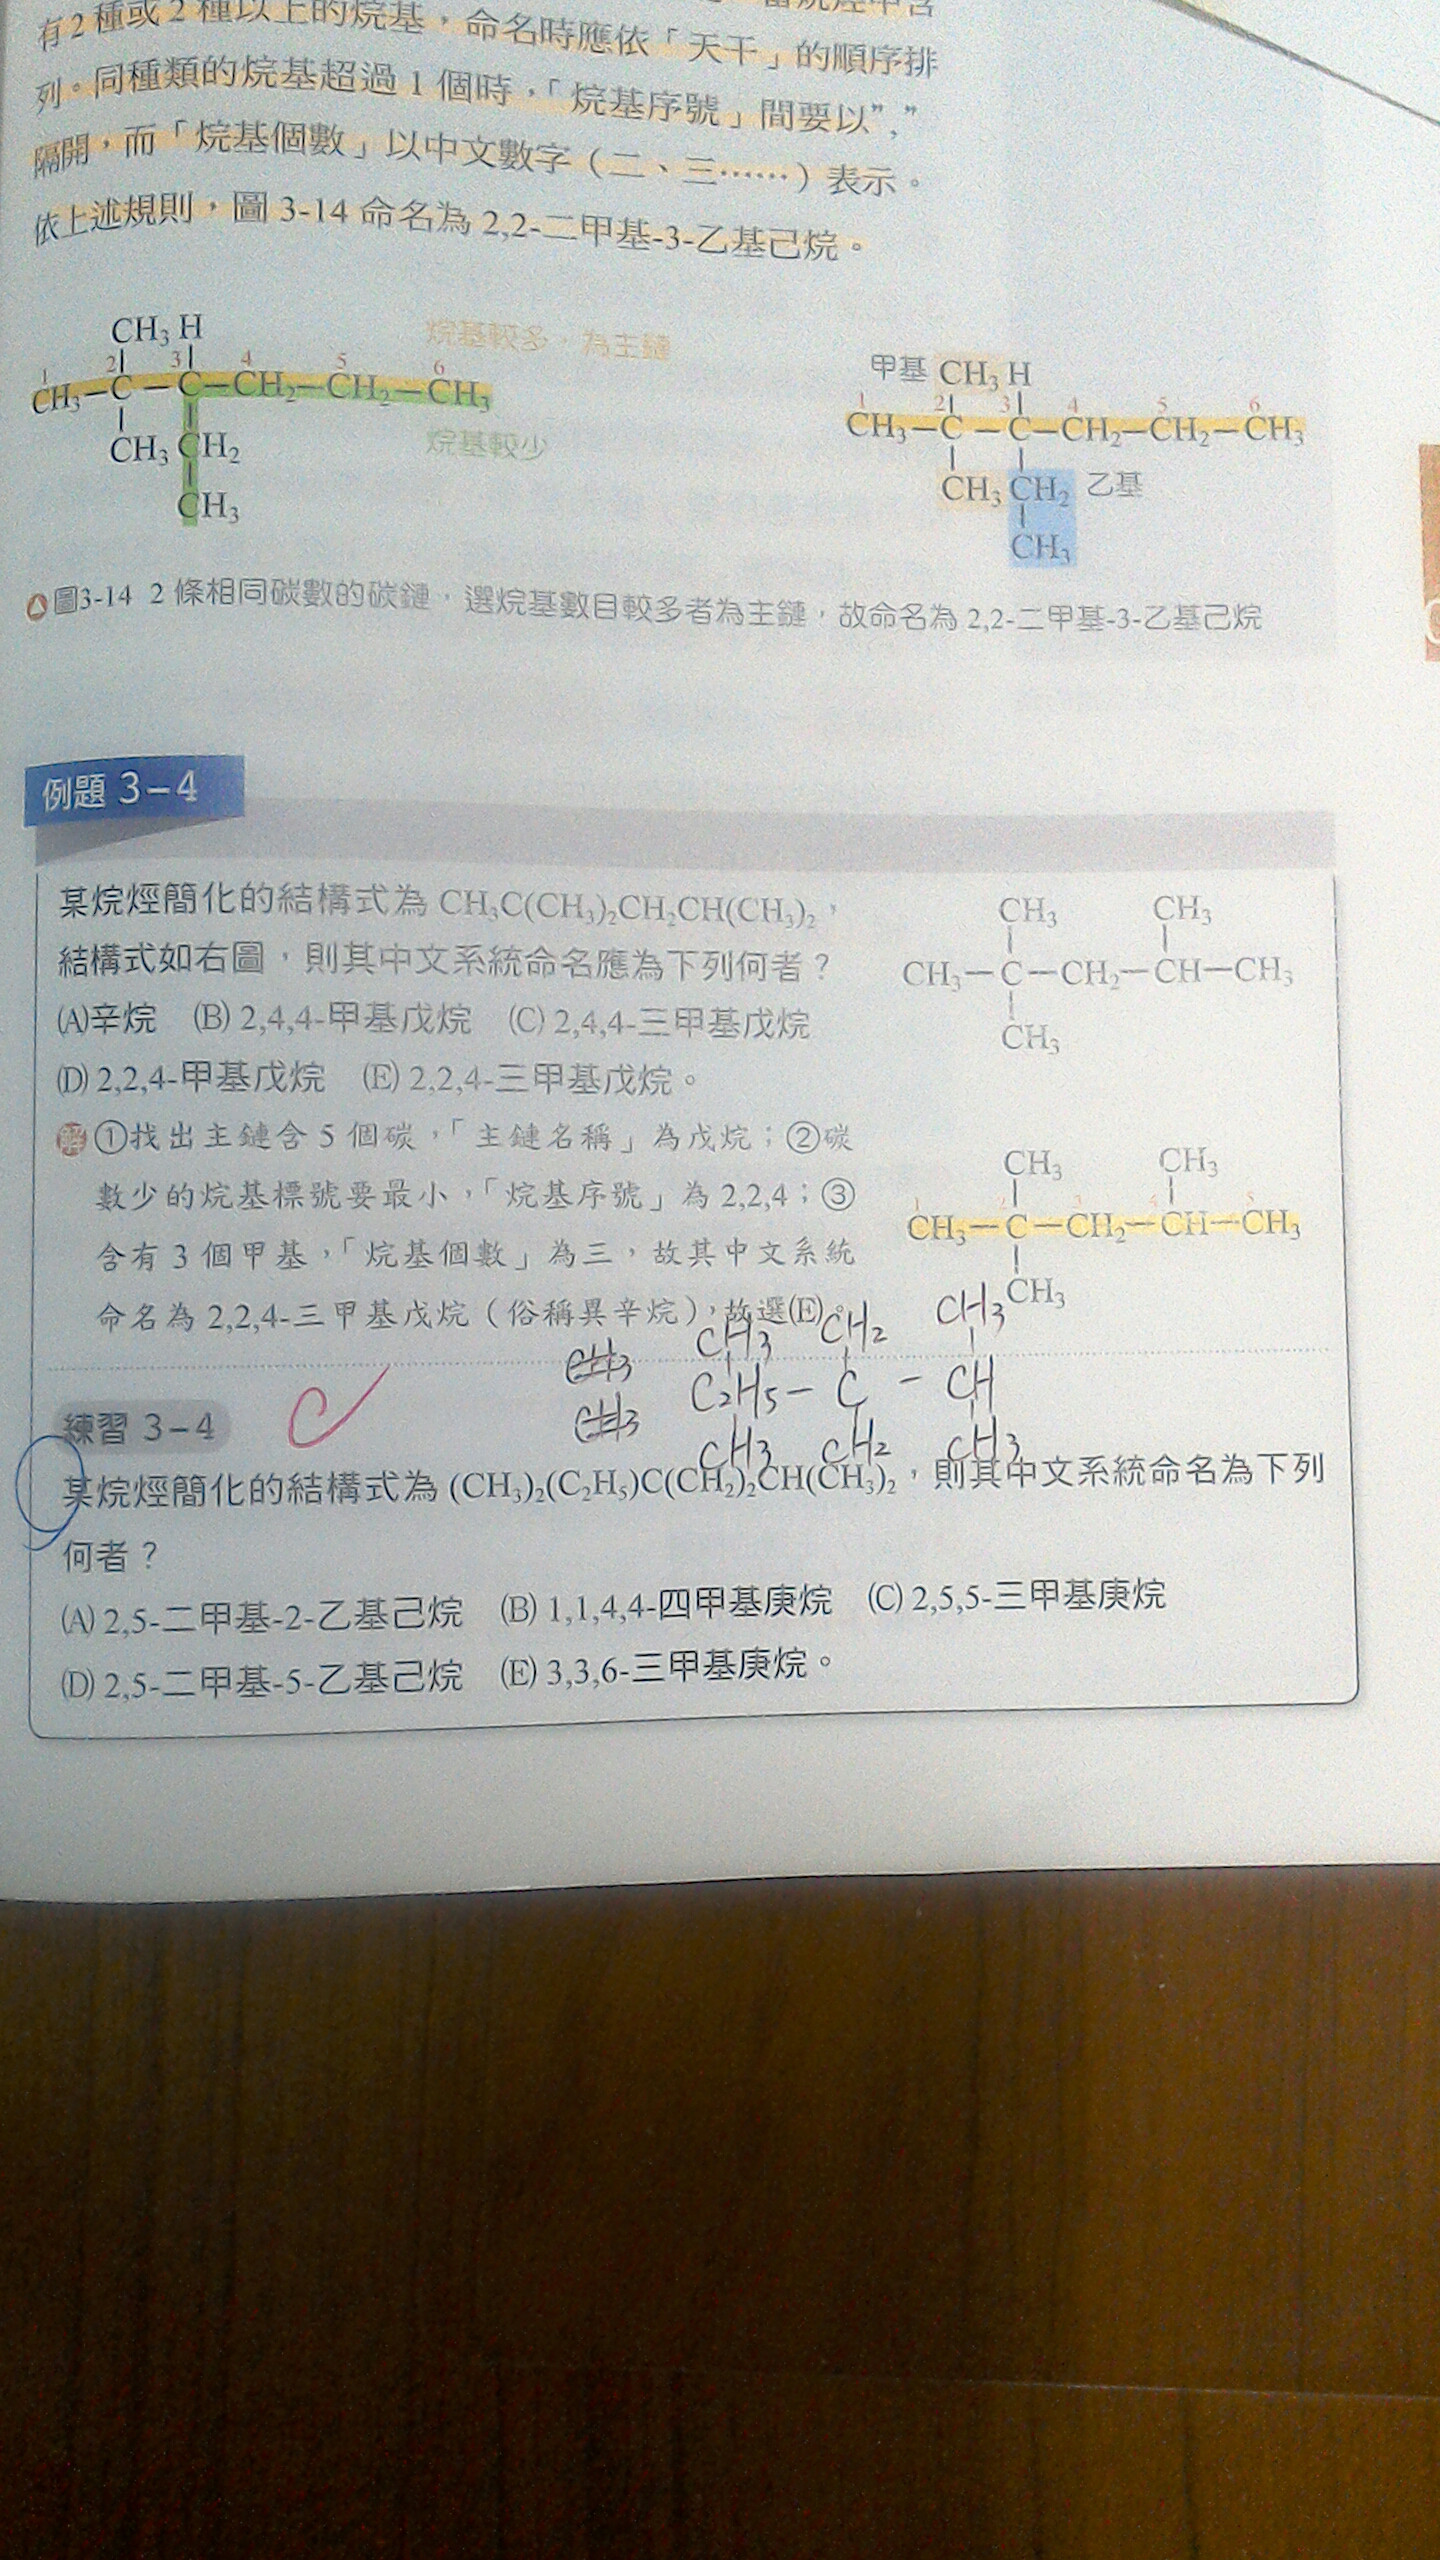 有2種或2種以上的烷基，命名時應依「天干」的順序排
列。同種類的烷基超過1個時，「烷基序號」間要以”,”
隔開，而「烷基個數」以中文數字（二、三……）表示。
依上述規則，圖3-14命名為2,2-二甲基-3-乙基己烷。
CH₃ H
烷基較多，為主鏈
1 2 3 4 5 6
CH₃—C—C—CH₂—CH₂—CH₃
CH₃ CH₂
烷基較少
CH₃
甲基 CH₃ H
1 2 3 4 5 6
CH₃—C—C—CH₂—CH₂—CH₃
CH₃ CH₂ 乙基
CH₃
圖3-14 2條相同碳數的碳鏈，選烷基數目較多者為主鏈，故命名為2,2-二甲基-3-乙基己烷
例題 3-4
某烷烴簡化的結構式為CH₃C(CH₃)₂CH₂CH(CH₃)₂，
結構式如右圖，則其中文系統命名應為下列何者？
(A)辛烷 (B) 2,4,4-甲基戊烷 (C) 2,4,4-三甲基戊烷
(D) 2,2,4-甲基戊烷 (E) 2,2,4-三甲基戊烷。
CH₃ CH₃
CH₃—C—CH₂—CH—CH₃
CH₃
解 ①找出主鏈含5個碳，「主鏈名稱」為戊烷；②碳
數少的烷基標號要最小，「烷基序號」為2,2,4；③
含有3個甲基，「烷基個數」為三，故其中文系統
命名為2,2,4-三甲基戊烷（俗稱異辛烷），故選(E)。
CH₃ CH₃
1 2 3 4 5
CH₃—C—CH₂—CH—CH₃
CH₃
CH3 CH2 CH3
C2H5 - C - CH
CH3 CH2 CH3
CH3
CH3
練習 3-4
某烷烴簡化的結構式為(CH₃)₂(C₂H₅)C(CH₂)₂CH(CH₃)₂，則其中文系統命名為下列
何者？
(A) 2,5-二甲基-2-乙基己烷 (B) 1,1,4,4-四甲基庚烷 (C) 2,5,5-三甲基庚烷
(D) 2,5-二甲基-5-乙基己烷 (E) 3,3,6-三甲基庚烷。